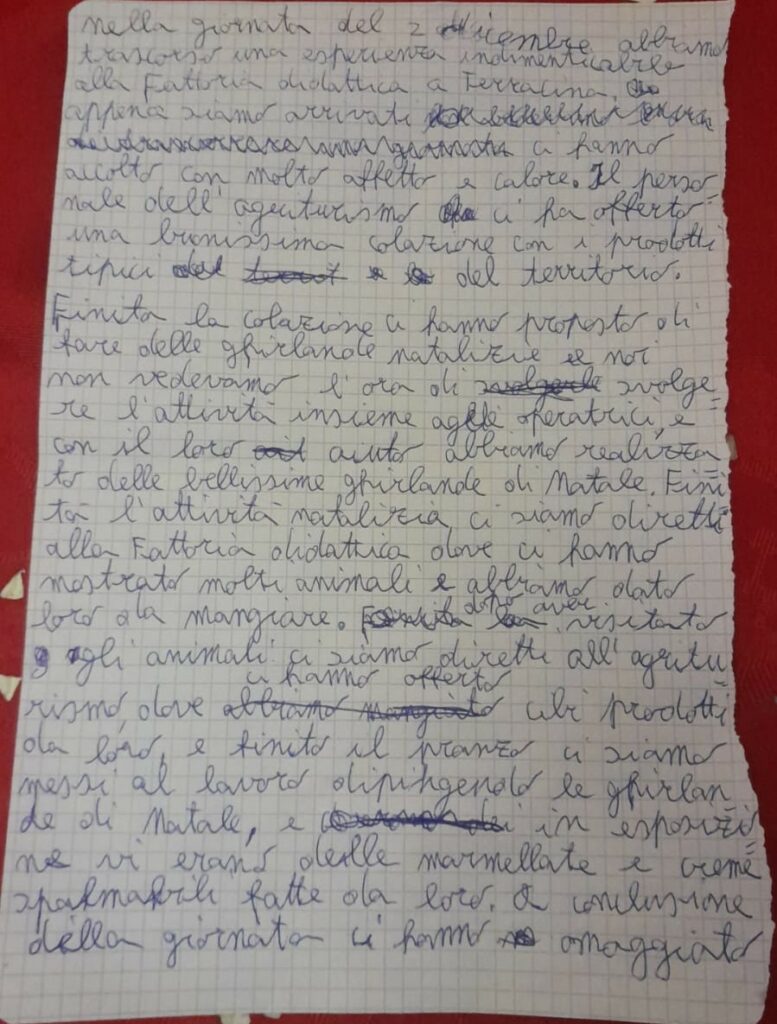 nella giornata del 2 dicembre abbiamo
trascorso una esperienza indimenticabile
alla Fattoria didattica a Terracina.
appena siamo arrivati
ci hanno
accolto con molto affetto e calore. Il perso=
nale dell'agriturismo ci ha offerto
una bionissima colazione con i prodotti
tipici del territorio.
Finita la colazione ci hanno proposto di
fare delle ghirlande natalizie e noi
non vedevamo l'ora di svolge=
re l'attività insieme agli operatrici, e
con il loro aiuto abbiamo realizza=
to delle bellissime ghirlande di Natale. Fini=
ta l'attività natalizia, ci siamo diretti
alla Fattoria didattica dove ci hanno
mostrato molti animali e abbiamo dato
loro da mangiare. dopo aver visitato
gli animali ci siamo diretti all'agritu=
rismo, dove ci hanno offerto cibi prodotti
da loro, e finito il pranzo ci siamo
messi al lavoro dipingendo le ghirlan=
de di Natale, e in esposizi=
ne vi erano delle marmellate e creme
spalmabili fatte da loro. A conclusione
della giornata ci hanno omaggiato